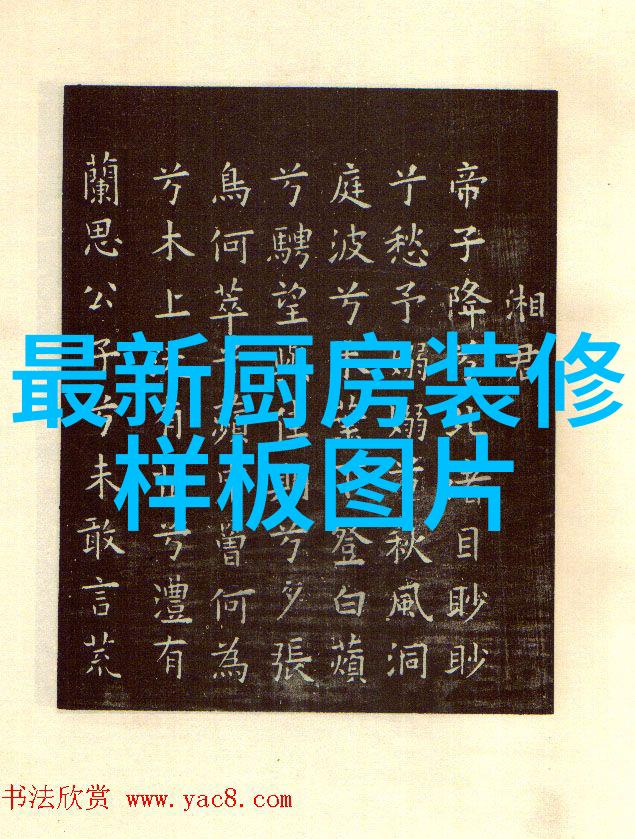 湘君
帝子降兮北渚目眇眇
兮愁予嫋嫋兮秋風洞
庭波兮木葉登白蘋
兮騁望與佳期兮夕張
鳥何萃蘋中罾何為
兮木上有兮澧有
蘭思公子兮未敢言荒
最新厨房装修
样板图片
书法欣赏 www.yac8.com